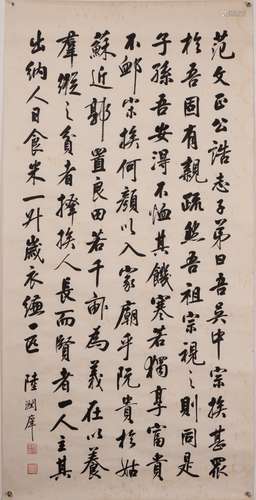 范文正公誥志子弟曰吾吳中宗族甚眾
於吾固有親疏然吾祖宗視之則同是
子孫吾安得不恤其饑寒若獨享富貴
不卹宗族何顏以入家廟乎既貴於姑
蘇近郭置良田若干畝為義在以養
羣從之貧者擇族人長而賢者一人主其
出納人日食米一升歲衣縑一匹
陸潤庠